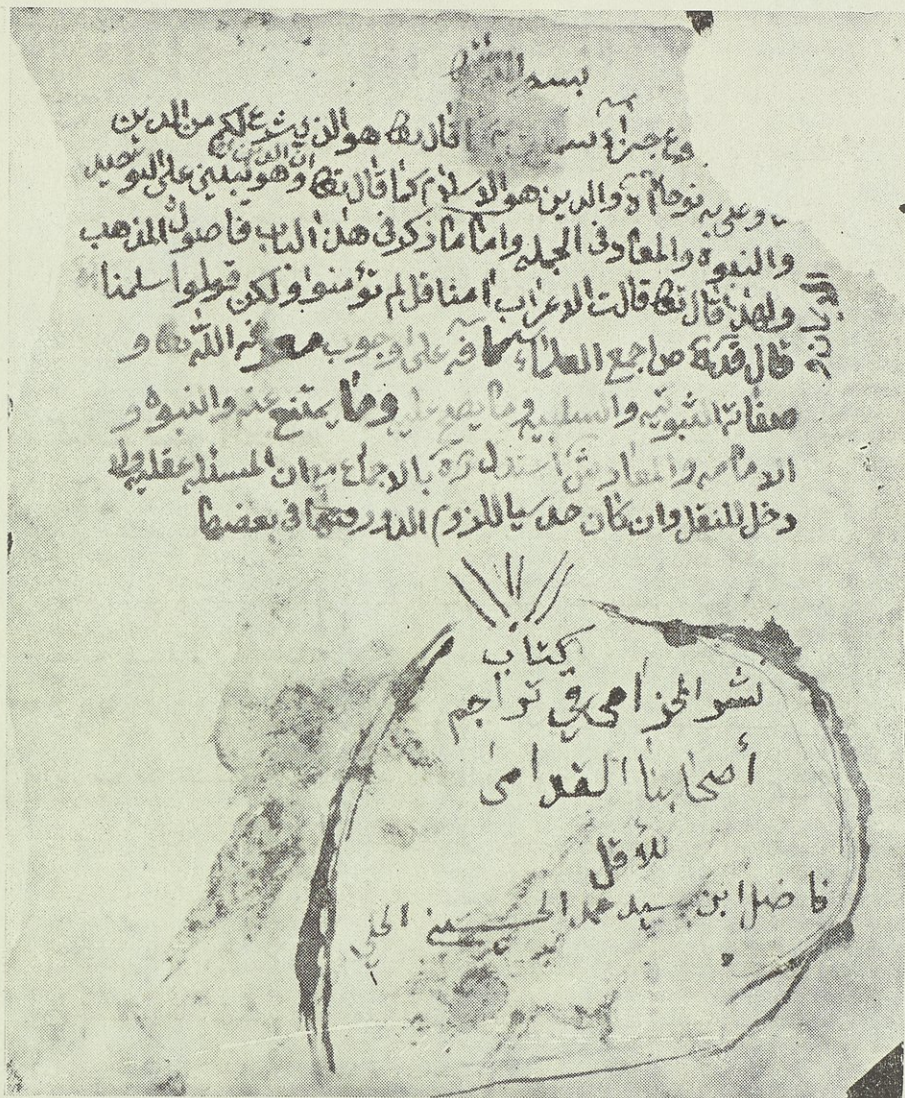 بسم الله
قال تعا هو الذي شرع لكم من الدين
والدين هو الاسلام كما قال تعا وهو يبتنى على التوحيد
والنبوة والمعاد في الجمله واما ما ذكر في هذا الباب فاصول المذهب
ولهذا قال تعا قالت الاعراب امنا قل لم تؤمنوا ولكن قولوا اسلمنا
قال قده ص اجمع العلماء كافه على وجوب معرفه الله تعا و
صفاته الثبوتيه والسلبيه وما يصح عليه وما يمتنع عنه والنبوه و
الامامه والمعاد ش استدل ره بالاجماع مع ان المسئله عقليه ولا
دخل للنقل وان كان حدسيا للزوم الدور في بعضها
كتاب
نشر الخزامى في تراجم
أصحابنا القدامى
للأقل
فاضل ابن سيد محمد الحسيني الحلي